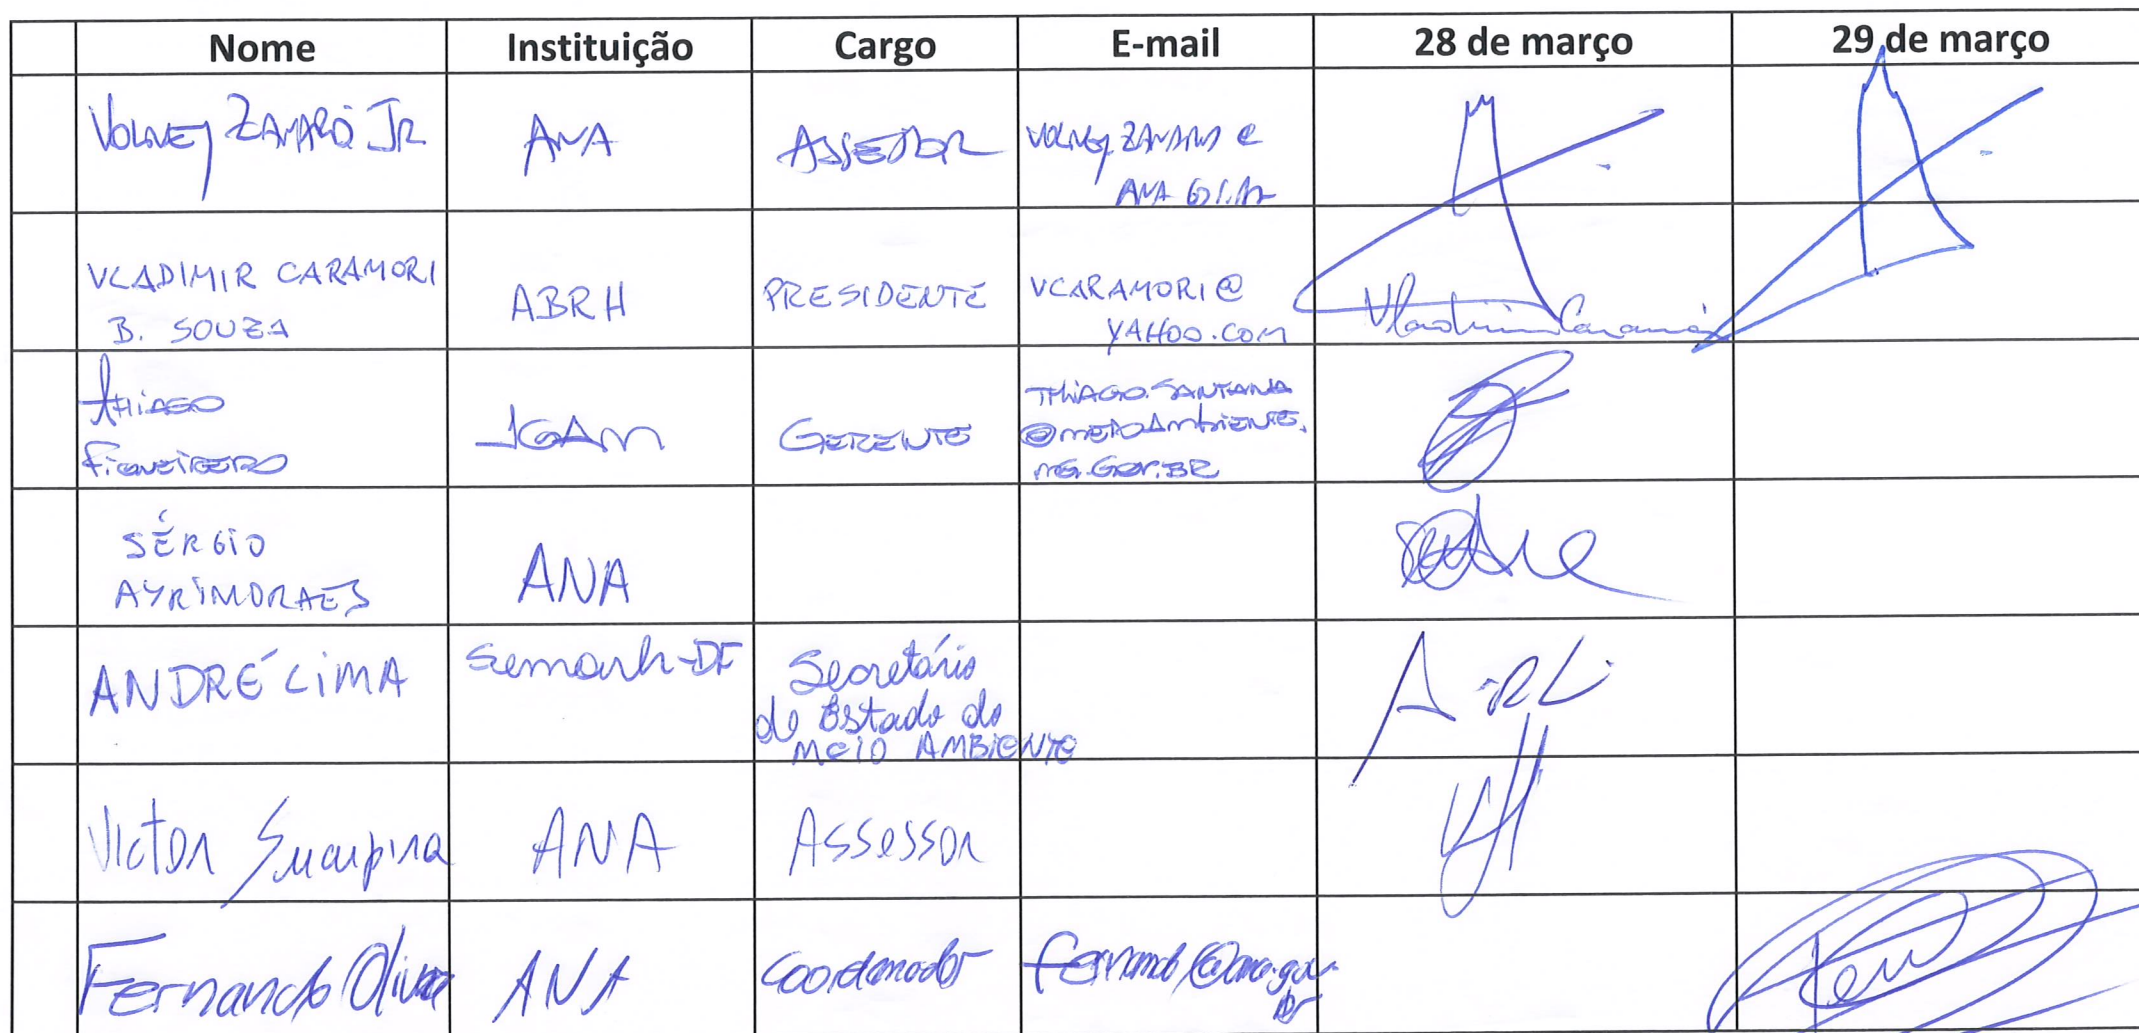 Nome Instituição Cargo E-mail 28 de março 29 de março
VOLNEY ZANARDI JR ANA ASSESSOR VOLNEY.ZANARDI@
ANA.GOV.BR
VLADIMIR CARAMORI ABRH PRESIDENTE VCARAMORI@
B. SOUZA YAHOO.COM Vladimir Caramori
THIAGO IGAM GERENTE THIAGO.SANTANA
FIGUEIREDO @MEIOAMBIENTE.
MG.GOV.BR
SÉRGIO ANA
AYRIMORAES
ANDRÉ LIMA Semarh-DF Secretário
de Estado do
MEIO AMBIENTE
Victor Sucupira ANA Assessor
Fernando Oliva ANA Coordenador